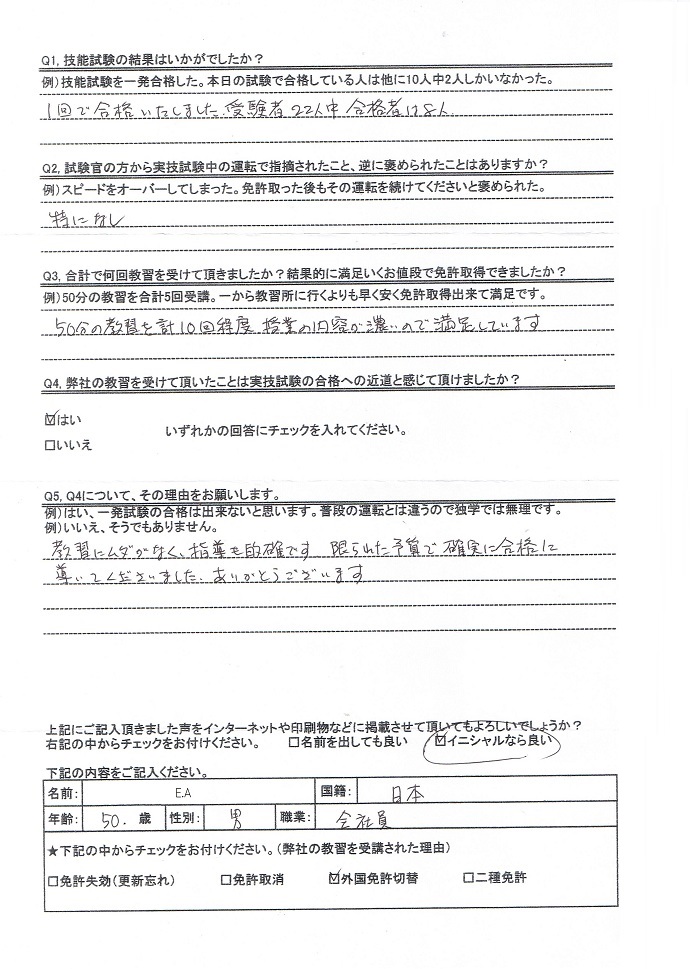 Q1, 技能試験の結果はいかがでしたか？
例)技能試験を一発合格した。本日の試験で合格している人は他に10人中2人しかいなかった。
1回で合格いたしました、受験者22人中 合格者は8人、
Q2, 試験官の方から実技試験中の運転で指摘されたこと、逆に褒められたことはありますか？
例)スピードをオーバーしてしまった。免許取った後もその運転を続けてくださいと褒められた。
特になし
Q3, 合計で何回教習を受けて頂きましたか？結果的に満足いくお値段で免許取得できましたか？
例)50分の教習を合計5回受講。一から教習所に行くよりも早く安く免許取得出来て満足です。
50分の教習を計10回程度 授業の内容が濃いので満足しています
Q4, 弊社の教習を受けて頂いたことは実技試験の合格への近道と感じて頂けましたか？
☑はい
いずれかの回答にチェックを入れてください。
□いいえ
Q5, Q4について、その理由をお願いします。
例)はい、一発試験の合格は出来ないと思います。普段の運転とは違うので独学では無理です。
例)いいえ、そうでもありません。
教習にムダがなく、指導も的確です 限られた予算で確実に合格に
導いてくださいました、ありがとうございます
上記にご記入頂きました声をインターネットや印刷物などに掲載させて頂いてもよろしいでしょうか？
右記の中からチェックをお付けください。 □名前を出しても良い ☑イニシャルなら良い
下記の内容をご記入ください。
名前: E.A 国籍: 日本
年齢: 50. 歳 性別: 男 職業: 会社員
★下記の中からチェックをお付けください。(弊社の教習を受講された理由)
□免許失効(更新忘れ) □免許取消 ☑外国免許切替 □二種免許